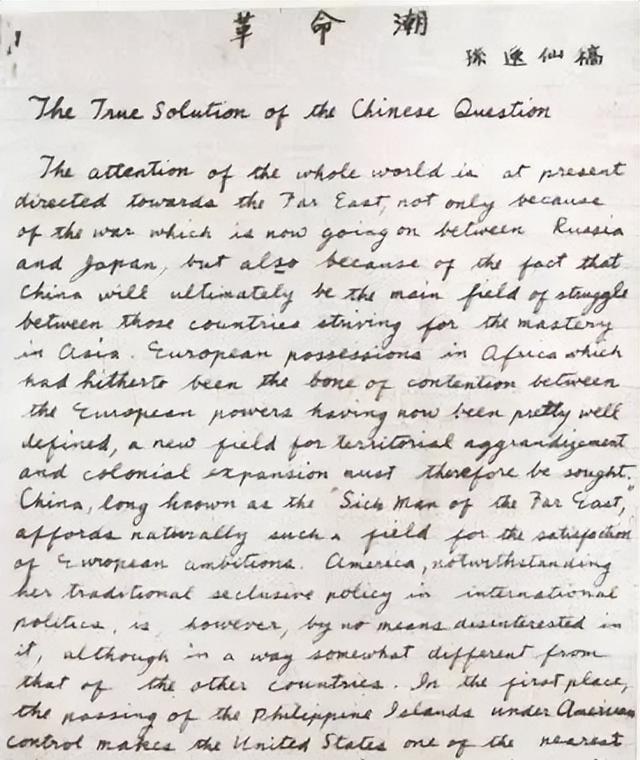 革命潮
孫逸仙稿
The True Solution of the Chinese Question
The attention of the whole world is at present
directed towards the Far East, not only because
of the war which is now going on between Russia
and Japan, but also because of the fact that
China will ultimately be the main field of struggle
between those countries striving for the mastery
in Asia. European possessions in Africa which
had hitherto been the bone of contention between
the European powers having now been pretty well
defined, a new field for territorial aggrandizement
and colonial expansion must therefore be sought.
China, long known as the "Sick Man of the Far East,"
affords naturally such a field for the satisfaction
of European ambitions. America, notwithstanding
her traditional seclusive policy in international
politics, is however, by no means disinterested in
it, although in a way somewhat different from
that of the other countries. In the first place,
the passing of the Philippine Islands under American
control makes the United States one of the nearest